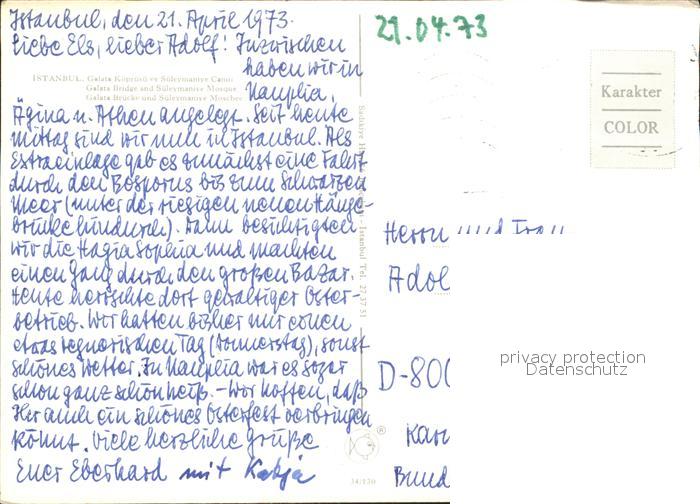 Istanbul, den 21. April 1973.
Liebe Els, lieber Adolf! Inzwischen
haben wir in
Nauplia,
Ägina u. Athen angelegt. Seit heute
mittag sind wir nun in Istanbul. Als
Extraeinlage gab es zunächst eine Fahrt
durch den Bosporus bis zum Schwarzen
Meer (unter der riesigen neuen Hänge-
brücke hindurch). Dann besichtigten
wir die Hagia Sophia und machten
einen Gang durch den großen Bazar.
Heute herrschte dort gewaltiger Oster-
betrieb. Wir hatten bisher nur einen
etwas regnerischen Tag (Donnerstag), sonst
schönes Wetter. In Nauplia war es sogar
schon ganz schön heiß. – Wir hoffen, daß
Ihr auch ein schönes Osterfest verbringen
könnt. Viele herzliche Grüße
Euer Eberhard mit Katja
ISTANBUL. Galata Köprüsü ve Süleymaniye Camii
Galata Bridge and Süleymaniye Mosque
Galata Brücke und Süleymaniye Moschee
Istanbul Tel. 27 37 51
®
34/130
21.04.73
Karakter
COLOR
Herrn und Frau
Adol
D-800
Bund
privacy protection
Datenschutz